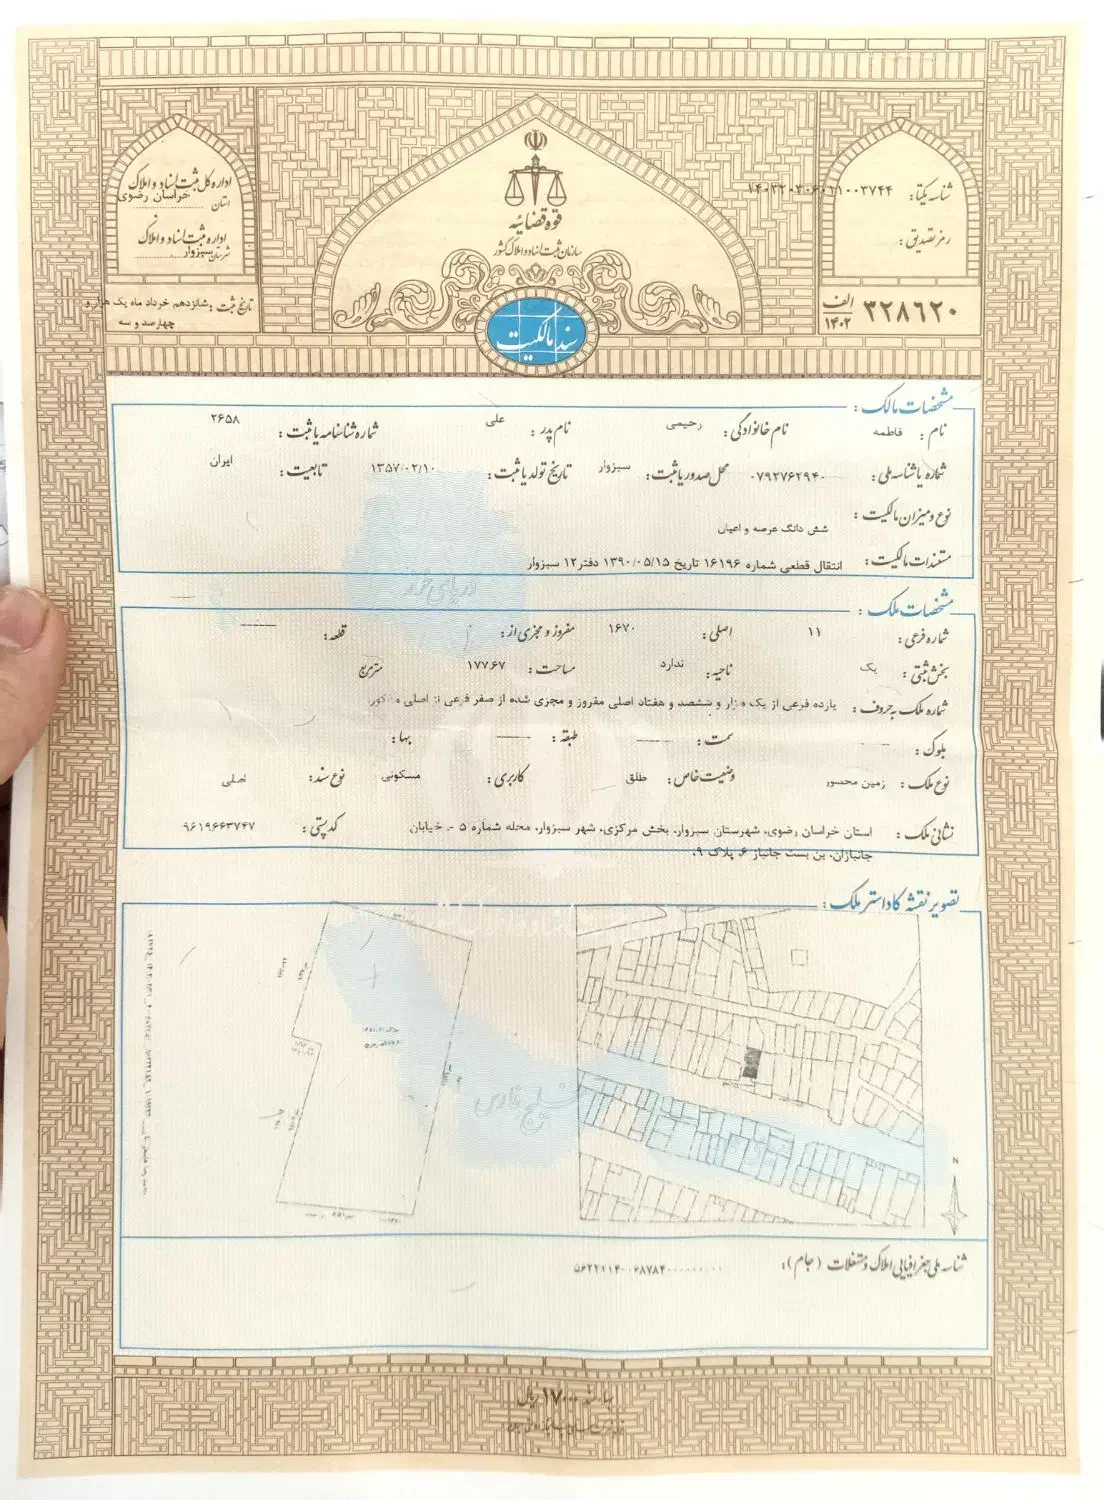 قوه قضائیه
سازمان ثبت اسناد و املاک کشور
سند مالکیت
شناسه یکتا: ۱۴۰۳۲۰۳۰۶۰۲۱۰۰۳۷۴۴
رمز تصدیق:
۳۲۸۶۲۰ الف ۱۴۰۲
اداره کل ثبت اسناد و املاک
استان خراسان رضوی
اداره ثبت اسناد و املاک
شهرستان سبزوار
تاریخ ثبت: شانزدهم خرداد ماه یک هزار و
چهارصد و سه
مشخصات مالک:
نام: فاطمه نام خانوادگی: رحیمی نام پدر: علی شماره شناسنامه یا ثبت: ۲۶۵۸
شماره یا شناسه ملی: ۰۷۹۲۷۶۲۹۴۰ محل صدور یا ثبت: سبزوار تاریخ تولد یا ثبت: ۱۳۵۷/۰۲/۱۰ تابعیت: ایران
نوع و میزان مالکیت:
شش دانگ عرصه و اعیان
مستندات مالکیت: انتقال قطعی شماره ۱۶۱۹۶ تاریخ ۱۳۹۰/۰۵/۱۵ دفتر ۱۲ سبزوار
دریای خزر
مشخصات ملک:
شماره فرعی: ۱۱ اصلی: ۱۶۷۰ مفروز و مجزی از: قطعه: ------
بخش ثبتی: یک ناحیه: ندارد مساحت: ۱۷۷.۶۷ مترمربع
شماره ملک به حروف: یازده فرعی از یک هزار و ششصد و هفتاد اصلی مفروز و مجزی شده از صفر فرعی از اصلی مذکور
بلوک: سمت: ------ طبقه: ------ بها:
نوع ملک: زمین محصور وضعیت خاص: طلق کاربری: مسکونی نوع سند: اصلی
نشانی ملک: استان خراسان رضوی، شهرستان سبزوار، بخش مرکزی، شهر سبزوار، محله شماره ۵ -، خیابان کد پستی: ۹۶۱۹۶۶۳۷۴۷
جانبازان، بن بست جانباز ۶، پلاک ۹،
تصویر نقشه کاداستر ملک:
خلیج فارس
N
شناسه ملی جغرافیایی املاک و مستغلات (جام):